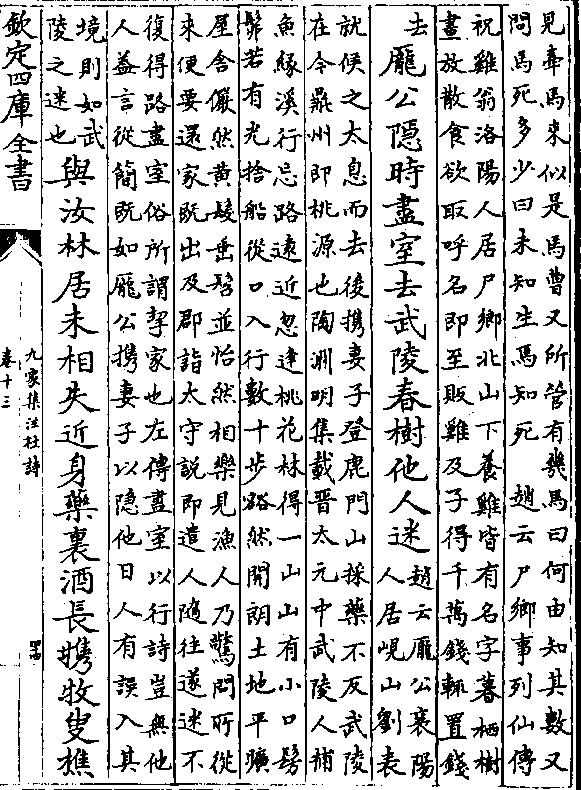 見牽馬來似是馬曹又所管有幾馬曰何由知其數又
問馬死多少曰未知生焉知死　趙云尸鄉事列仙傳
祝雞翁洛陽人居尸鄉北山下養雞皆有名字暮栖樹
晝放散食欲取呼名即至販雞及子得千萬錢輒置錢
去
龎公隠時盡室去武陵春樹他人迷
趙云龎公襄陽
人居峴山劉表
就候之太息而去後攜妻子登鹿門山採藥不反武陵
在今鼎州即桃源也陶淵明集載晉太元中武陵人捕
魚緣溪行忘路遠近忽逢桃花林得一山山有小口髣
髴若有光捨船從口入行數十步豁然開朗土地平曠
屋舍儼然黄髮垂髫並怡然相樂見漁人乃驚問所從
來便要還家既出及郡詣太守説即遣人隨往遂迷不
復得路盡室俗所謂挈家也左傳盡室以行詩豈無他
人益言從簡既如龎公攜妻子以隠他日人有誤入其
境則如武
陵之迷也
與汝林居未相失近身藥裹酒長攜牧叟樵
欽定四庫全書
九家集注杜詩
卷十三